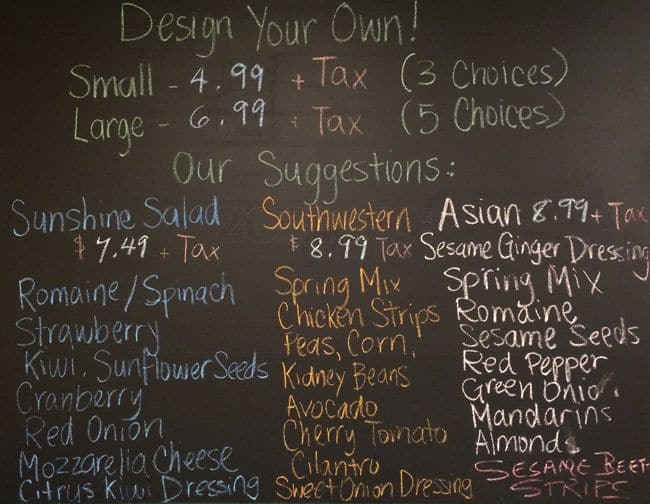 Design Your Own!
Small - 4.99 + Tax (3 Choices)
Large - 6.99 + Tax (5 Choices)
Our Suggestions:
Sunshine Salad
$7.49 + Tax
Romaine/Spinach
Strawberry
Kiwi, Sunflower Seeds
Cranberry
Red Onion
Mozzarella Cheese
Citrus Kiwi Dressing
Southwestern
$8.99 Tax
Spring Mix
Chicken Strips
Peas, Corn,
Kidney Beans
Avocado
Cherry Tomato
Cilantro
Sweet Onion Dressing
Asian 8.99 + Tax
Sesame Ginger Dressing
Spring Mix
Romaine
Sesame Seeds
Red Pepper
Green Onion
Mandarins
Almonds
SESAME BEEF
STRIPS